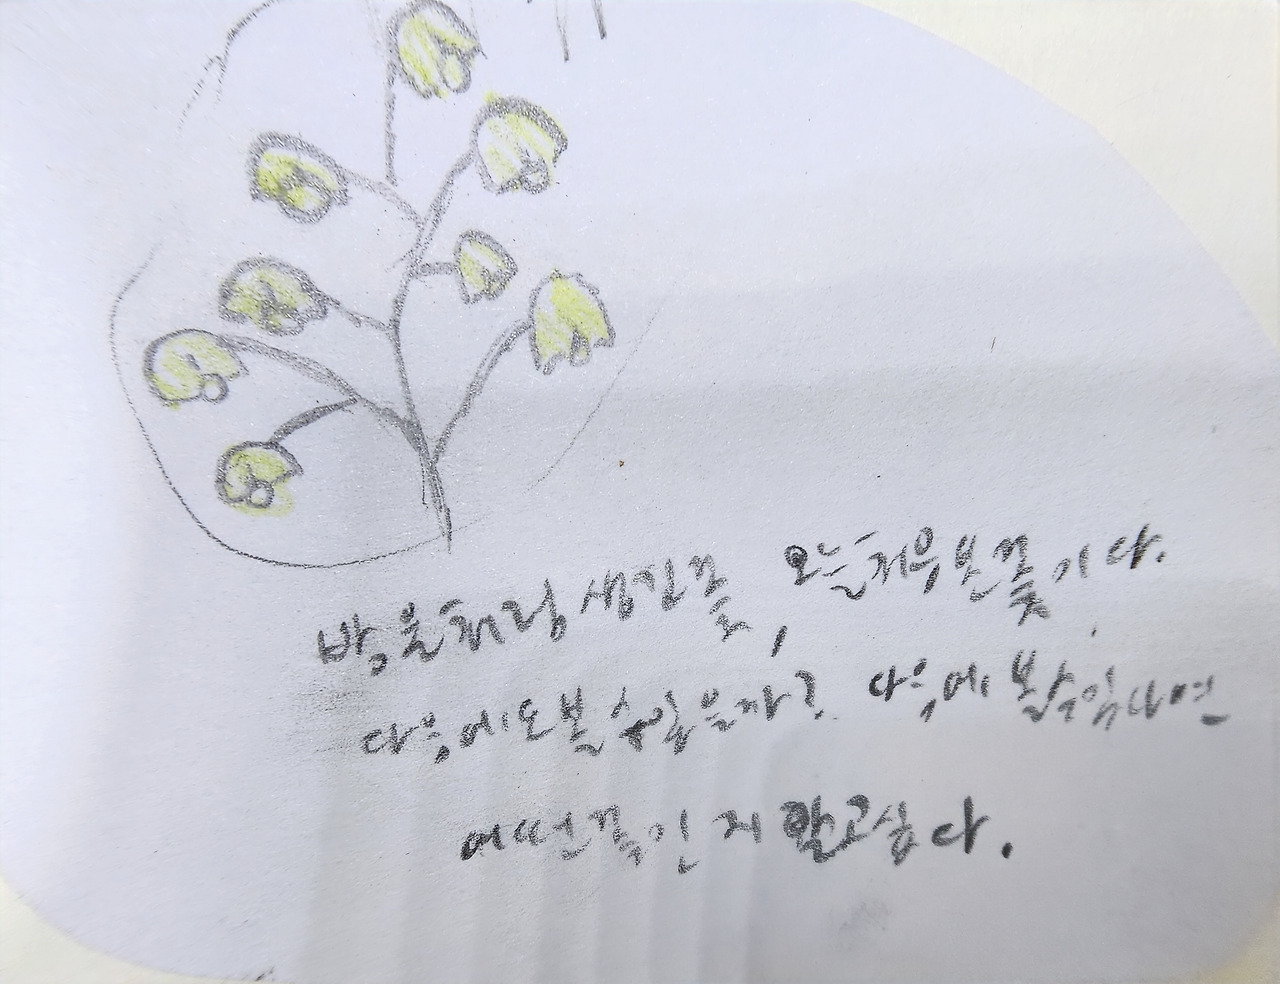 방울처럼 생긴 꽃, 오늘 처음 본 꽃이다.
다음에도 볼 수 있을까? 다음에 볼 수 있다면
어떤 꽃인지 알고 싶다.